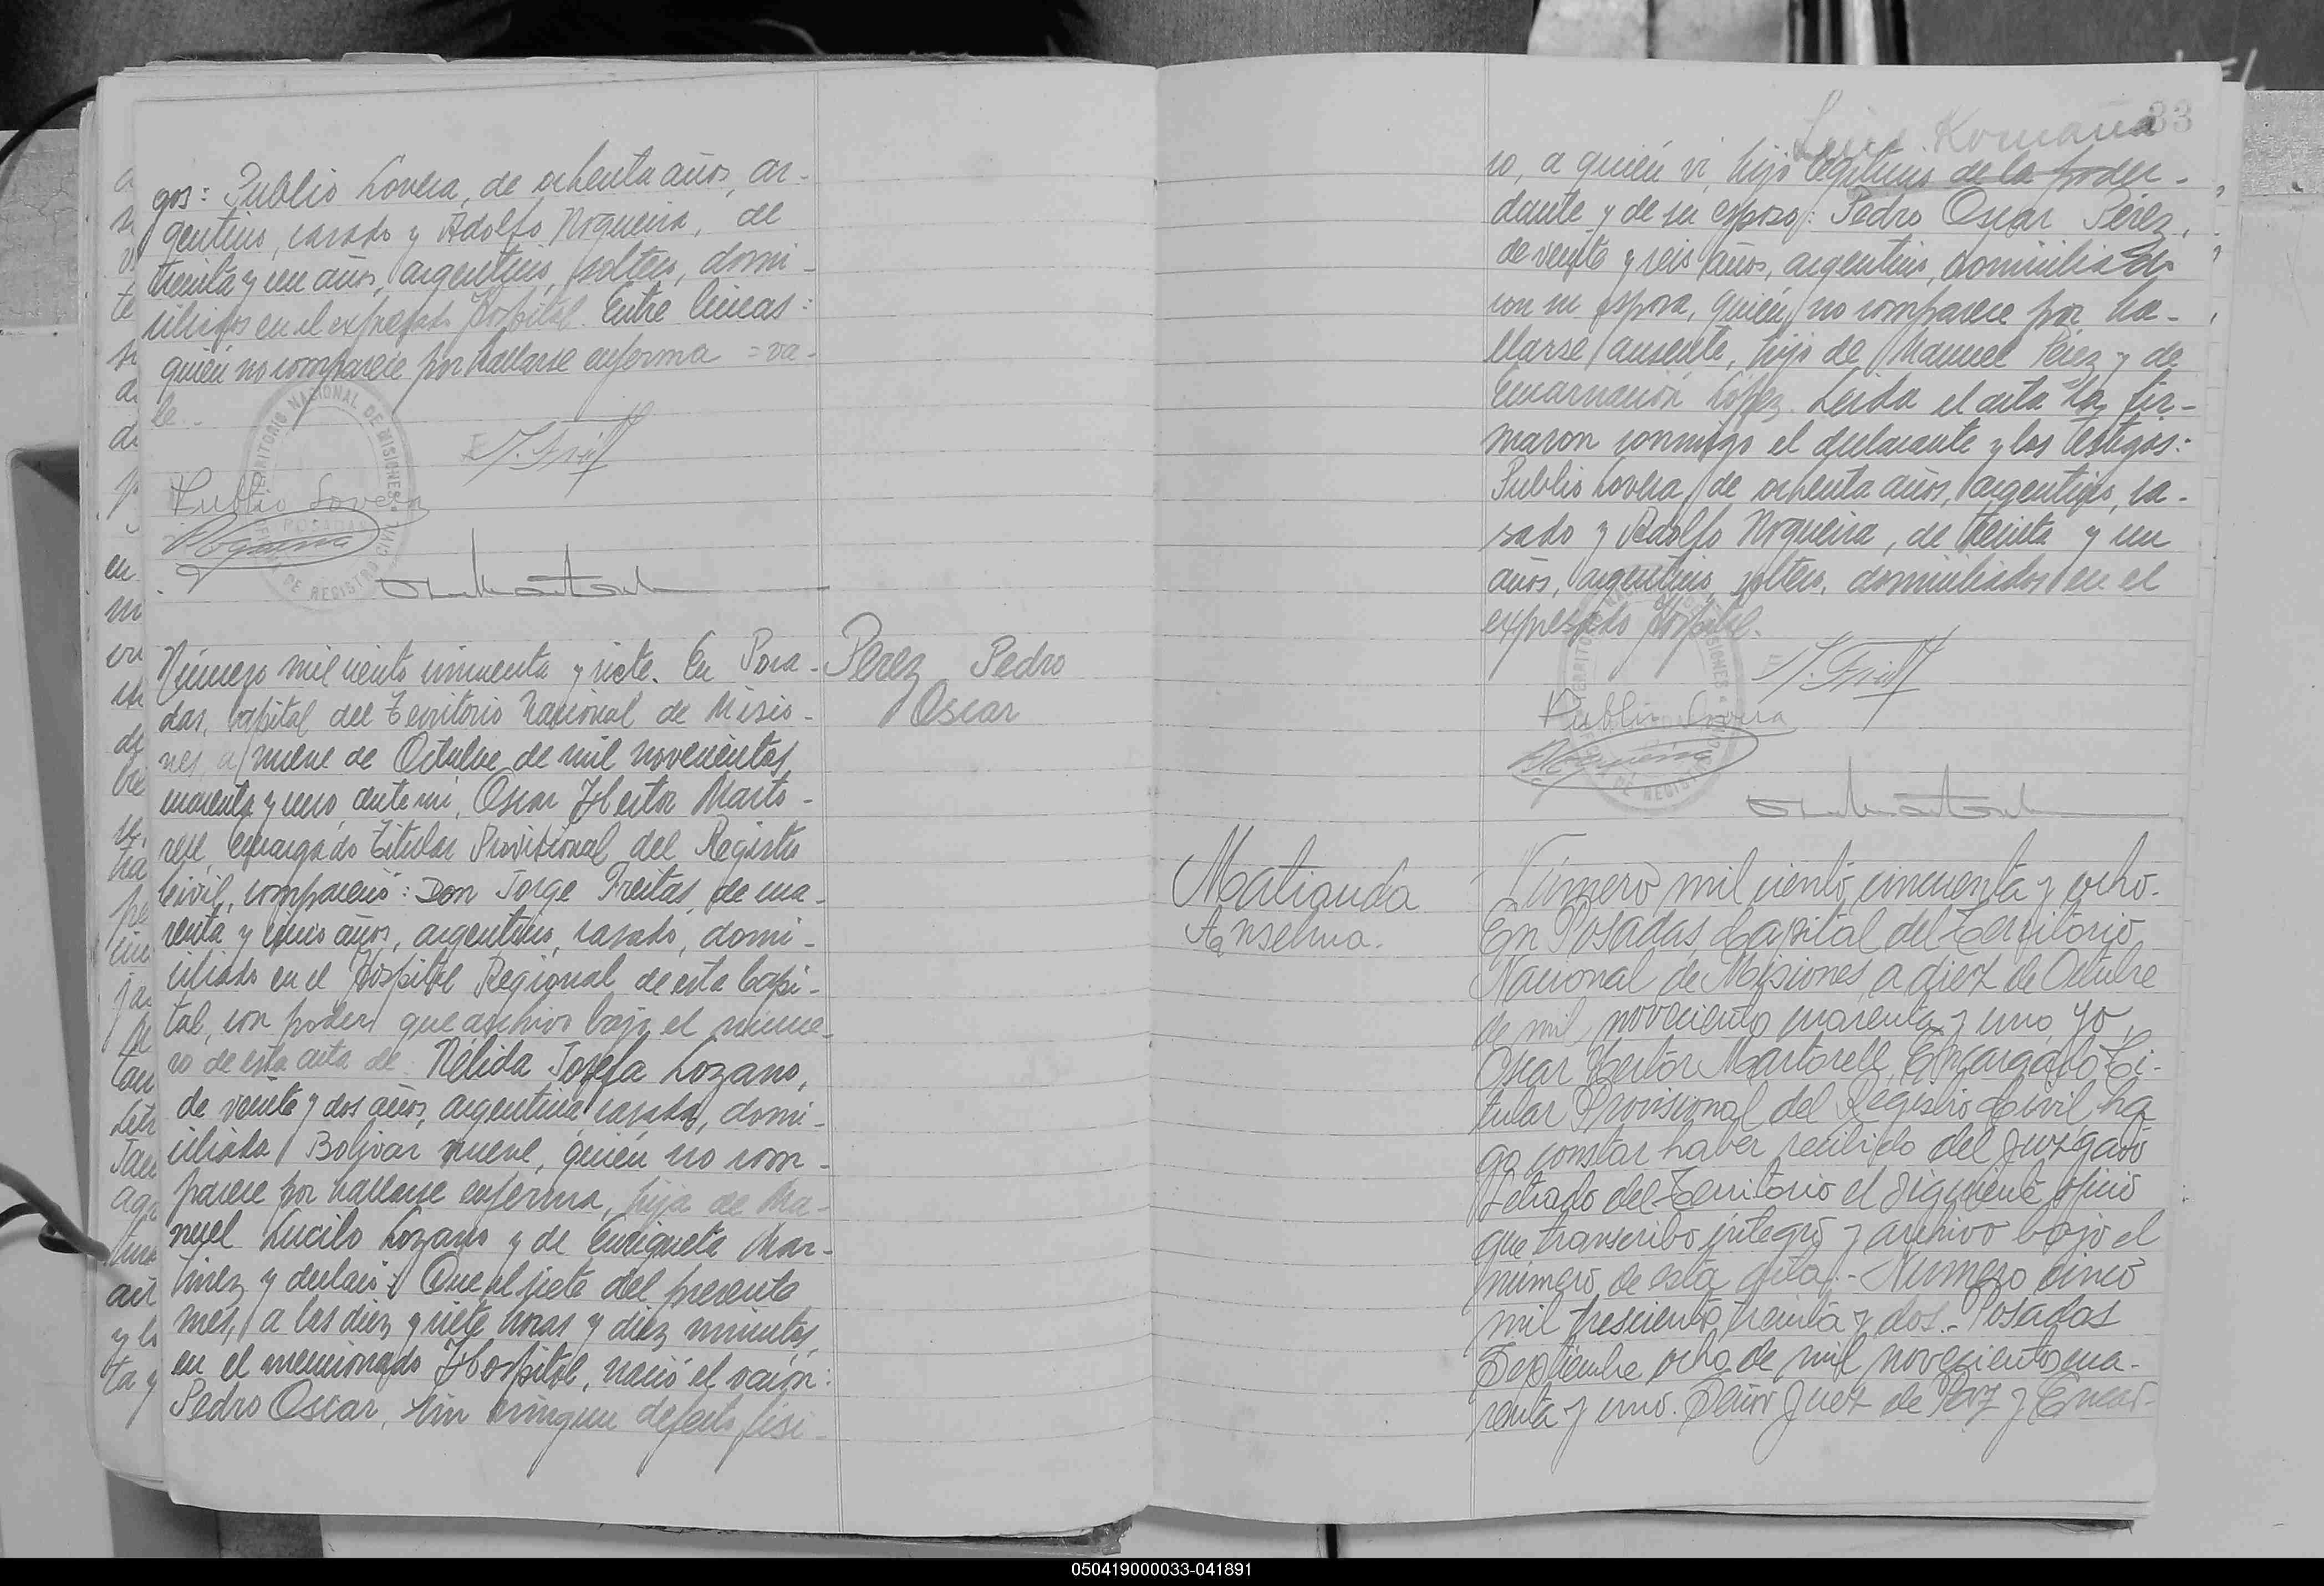 gos: Publio Lovera, de ochenta años, ar-
gentino, casado y Adolfo Nogueira, de
treinta y un años, argentino, soltero, domi-
ciliados en el expresado Hospital. Entre lineas:
quién no comparece por hallarse enferma = va-
le.-
TERRITORIO NACIONAL DE MISIONES
POSADAS
DE REGISTRO CIVIL
Publio Lovera
Nogueira
Número mil ciento cincuenta y siete. En Posa-
das, Capital del Territorio Nacional de Misio-
nes, a nueve de Octubre de mil novecientos
cuarenta y uno, ante mi, Oscar Hector Marto-
rell, Encargado Titular Provisional del Registro
Civil, compareció: Don Jorge Freitas, de cua-
renta y cinco años, argentino, casado, domi-
ciliado en el Hospital Regional de esta Capi-
tal, con poder que archivo bajo el núme-
ro de esta acta de Nélida Josefa Lozano,
de veinte y dos años, argentina, casada, domi-
ciliada Bolivar nueve, quién no com-
parece por hallarse enferma, hija de Ma-
nuel Lucilo Lozano y de Enriqueta Mar-
tinez y declaró: Que el siete del presente
mes, a las diez y siete horas y diez minutos,
en el mencionado Hospital, nació el varón:
Pedro Oscar, sin ningun defecto fisi-
Perez Pedro
Oscar
33
Romana
co, a quién vi, hijo legitimo de la poder-
dante y de su esposo: Pedro Oscar Pérez,
de veinte y seis años, argentino, domiciliado
con su esposa, quién no comparece por ha-
llarse ausente, hijo de Manuel Pérez y de
Encarnación López. Leida el acta la fir-
maron conmigo el declarante y los testigos:
Publio Lovera, de ochenta años, argentino, ca-
sado y Adolfo Nogueira, de treinta y un
años, argentino, soltero, domiciliados en el
expresado Hospital.
Publio Lovera
Nogueira
Matianda
Anselma.
Número mil ciento cincuenta y ocho.
En Posadas, Capital del Territorio
Nacional de Misiones, a diez de Octubre
de mil novecientos cuarenta y uno, yo,
Oscar Hector Martorell, Encargado Ti-
tular Provisional del Registro Civil, ha
go constar haber recibido del Juzgado
Letrado del Territorio el siguiente oficio
que transcribo integro y archivo bajo el
número de esta acta.- Numero cinco
mil trescientos treinta y dos.- Posadas
Septiembre ocho de mil novecientos cua-
renta y uno. Señor Juez de Paz y Encar-
050419000033-041891